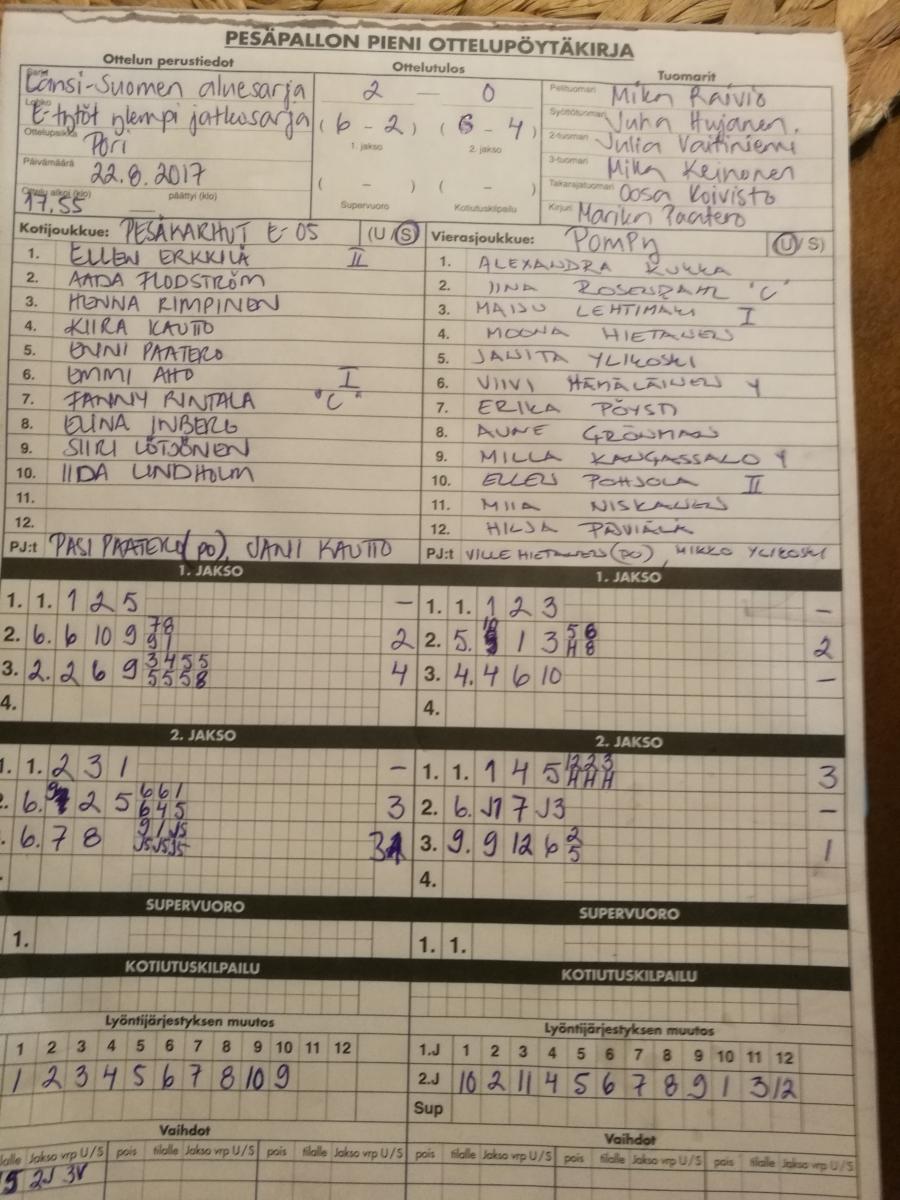 PESÄPALLON PIENI OTTELUPÖYTÄKIRJA
Ottelun perustiedot
Ottelutulos
Tuomarit
Sarja
Länsi-Suomen aluesarja
Lohko
E-tytöt ylempi jatkosarja
Ottelupaikka
Pori
Päivämäärä
22.8.2017
Ottelu alkoi (klo) päättyi (klo)
17.55
2 — 0
(6 - 2) (6 - 4)
1. jakso 2. jakso
( - ) ( - )
Supervuoro Kotiutuskilpailu
Pelituomari Mika Raivio
Syöttötuomari Juha Hujanen.
2-tuomari Julia Vaitiniemi
3-tuomari Mika Keinonen
Takarajatuomari Oosa Koivisto
Kirjuri Marika Paatero
Kotijoukkue: PESÄKARHUT E-05 (U/S)
1. ELLEN ERKKILÄ II
2. AADA FLODSTRÖM
3. HENNA RIMPINEN
4. KIIRA KAUTTO
5. ENNI PAATERO
6. EMMI AHO I
7. FANNY RINTALA "C"
8. ELINA INBERG
9. SIIRI LÖTJÖNEN
10. IIDA LINDHOLM
11.
12.
PJ:t PASI PAATERO (PO), JANI KAUTTO
Vierasjoukkue: Pompy (U/S)
1. ALEXANDRA KUKKA
2. IINA ROSENDAHL "C"
3. MAIJU LEHTIMÄKI I
4. MOONA HIETANEN
5. JANITA YLIKOSKI
6. VIIVI HÄMÄLÄINEN Y
7. ERIKA PÖYSTI
8. AUNE GRÖNMAN
9. MILLA KANGASSALO Y
10. ELLEN POHJOLA II
11. MIIA NISKANEN
12. HILJA
PJ:t VILLE HIETANEN (PO), MIKKO YLIKOSKI
1. JAKSO
1. 1. 1 2 5 –
2. 6. 6 10 9 7 8 9 1 2
3. 2. 2 6 9 3 4 5 5 5 5 5 8 4
4.
1. JAKSO
1. 1. 1 2 3 –
2. 5. 10 1 3 5 6 H 8 2
3. 4. 4 6 10 –
4.
2. JAKSO
1. 1. 2 3 1 –
2. 6. 9 2 5 6 6 1 6 4 5 3
. 6. 7 8 9 1 J5 J5 J5 J5 3
2. JAKSO
1. 1. 1 4 5 12 2 3 H H H 3
2. 6. J1 7 J3 –
3. 9. 9 12 6 2 5 1
4.
SUPERVUORO
1.
SUPERVUORO
1. 1.
KOTIUTUSKILPAILU
KOTIUTUSKILPAILU
Lyöntijärjestyksen muutos
1 2 3 4 5 6 7 8 9 10 11 12
1 2 3 4 5 6 7 8 10 9
Lyöntijärjestyksen muutos
1.J 1 2 3 4 5 6 7 8 9 10 11 12
2.J 10 2 11 4 5 6 7 8 9 1 3 12
Sup
Vaihdot
tilalle Jakso vrp U/S pois tilalle Jakso vrp U/S pois tilalle Jakso vrp U/S
2J 3V
Vaihdot
pois tilalle Jakso vrp U/S pois tilalle Jakso vrp U/S pois tilalle Jakso vrp U/S